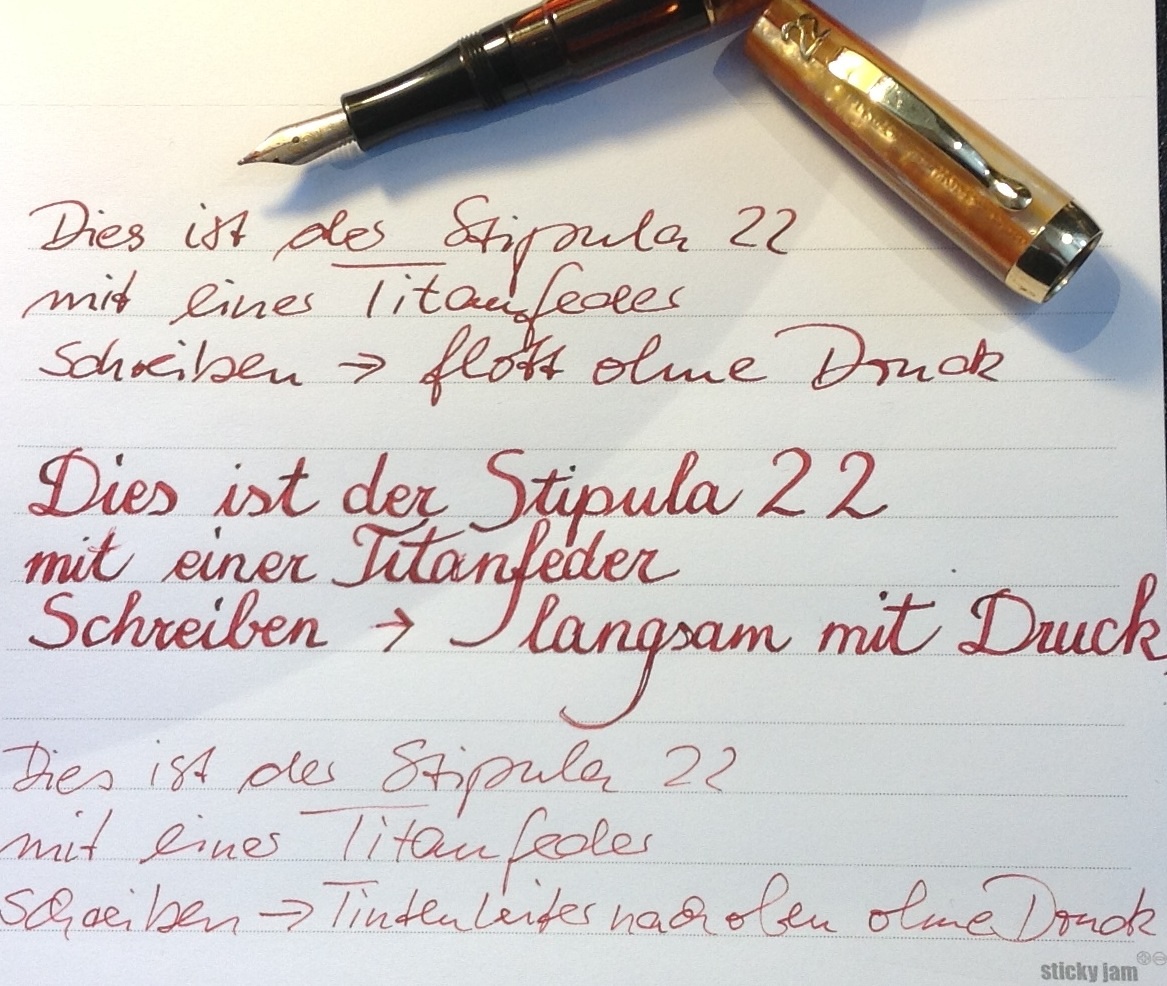 Dies ist der Stipula 22
mit einer Titanfeder
Schreiben → flott ohne Druck
Dies ist der Stipula 22
mit einer Titanfeder
Schreiben → langsam mit Druck
Dies ist der Stipula 22
mit einer Titanfeder
Schreiben → Tintenleiter nach oben ohne Druck
sticky jam